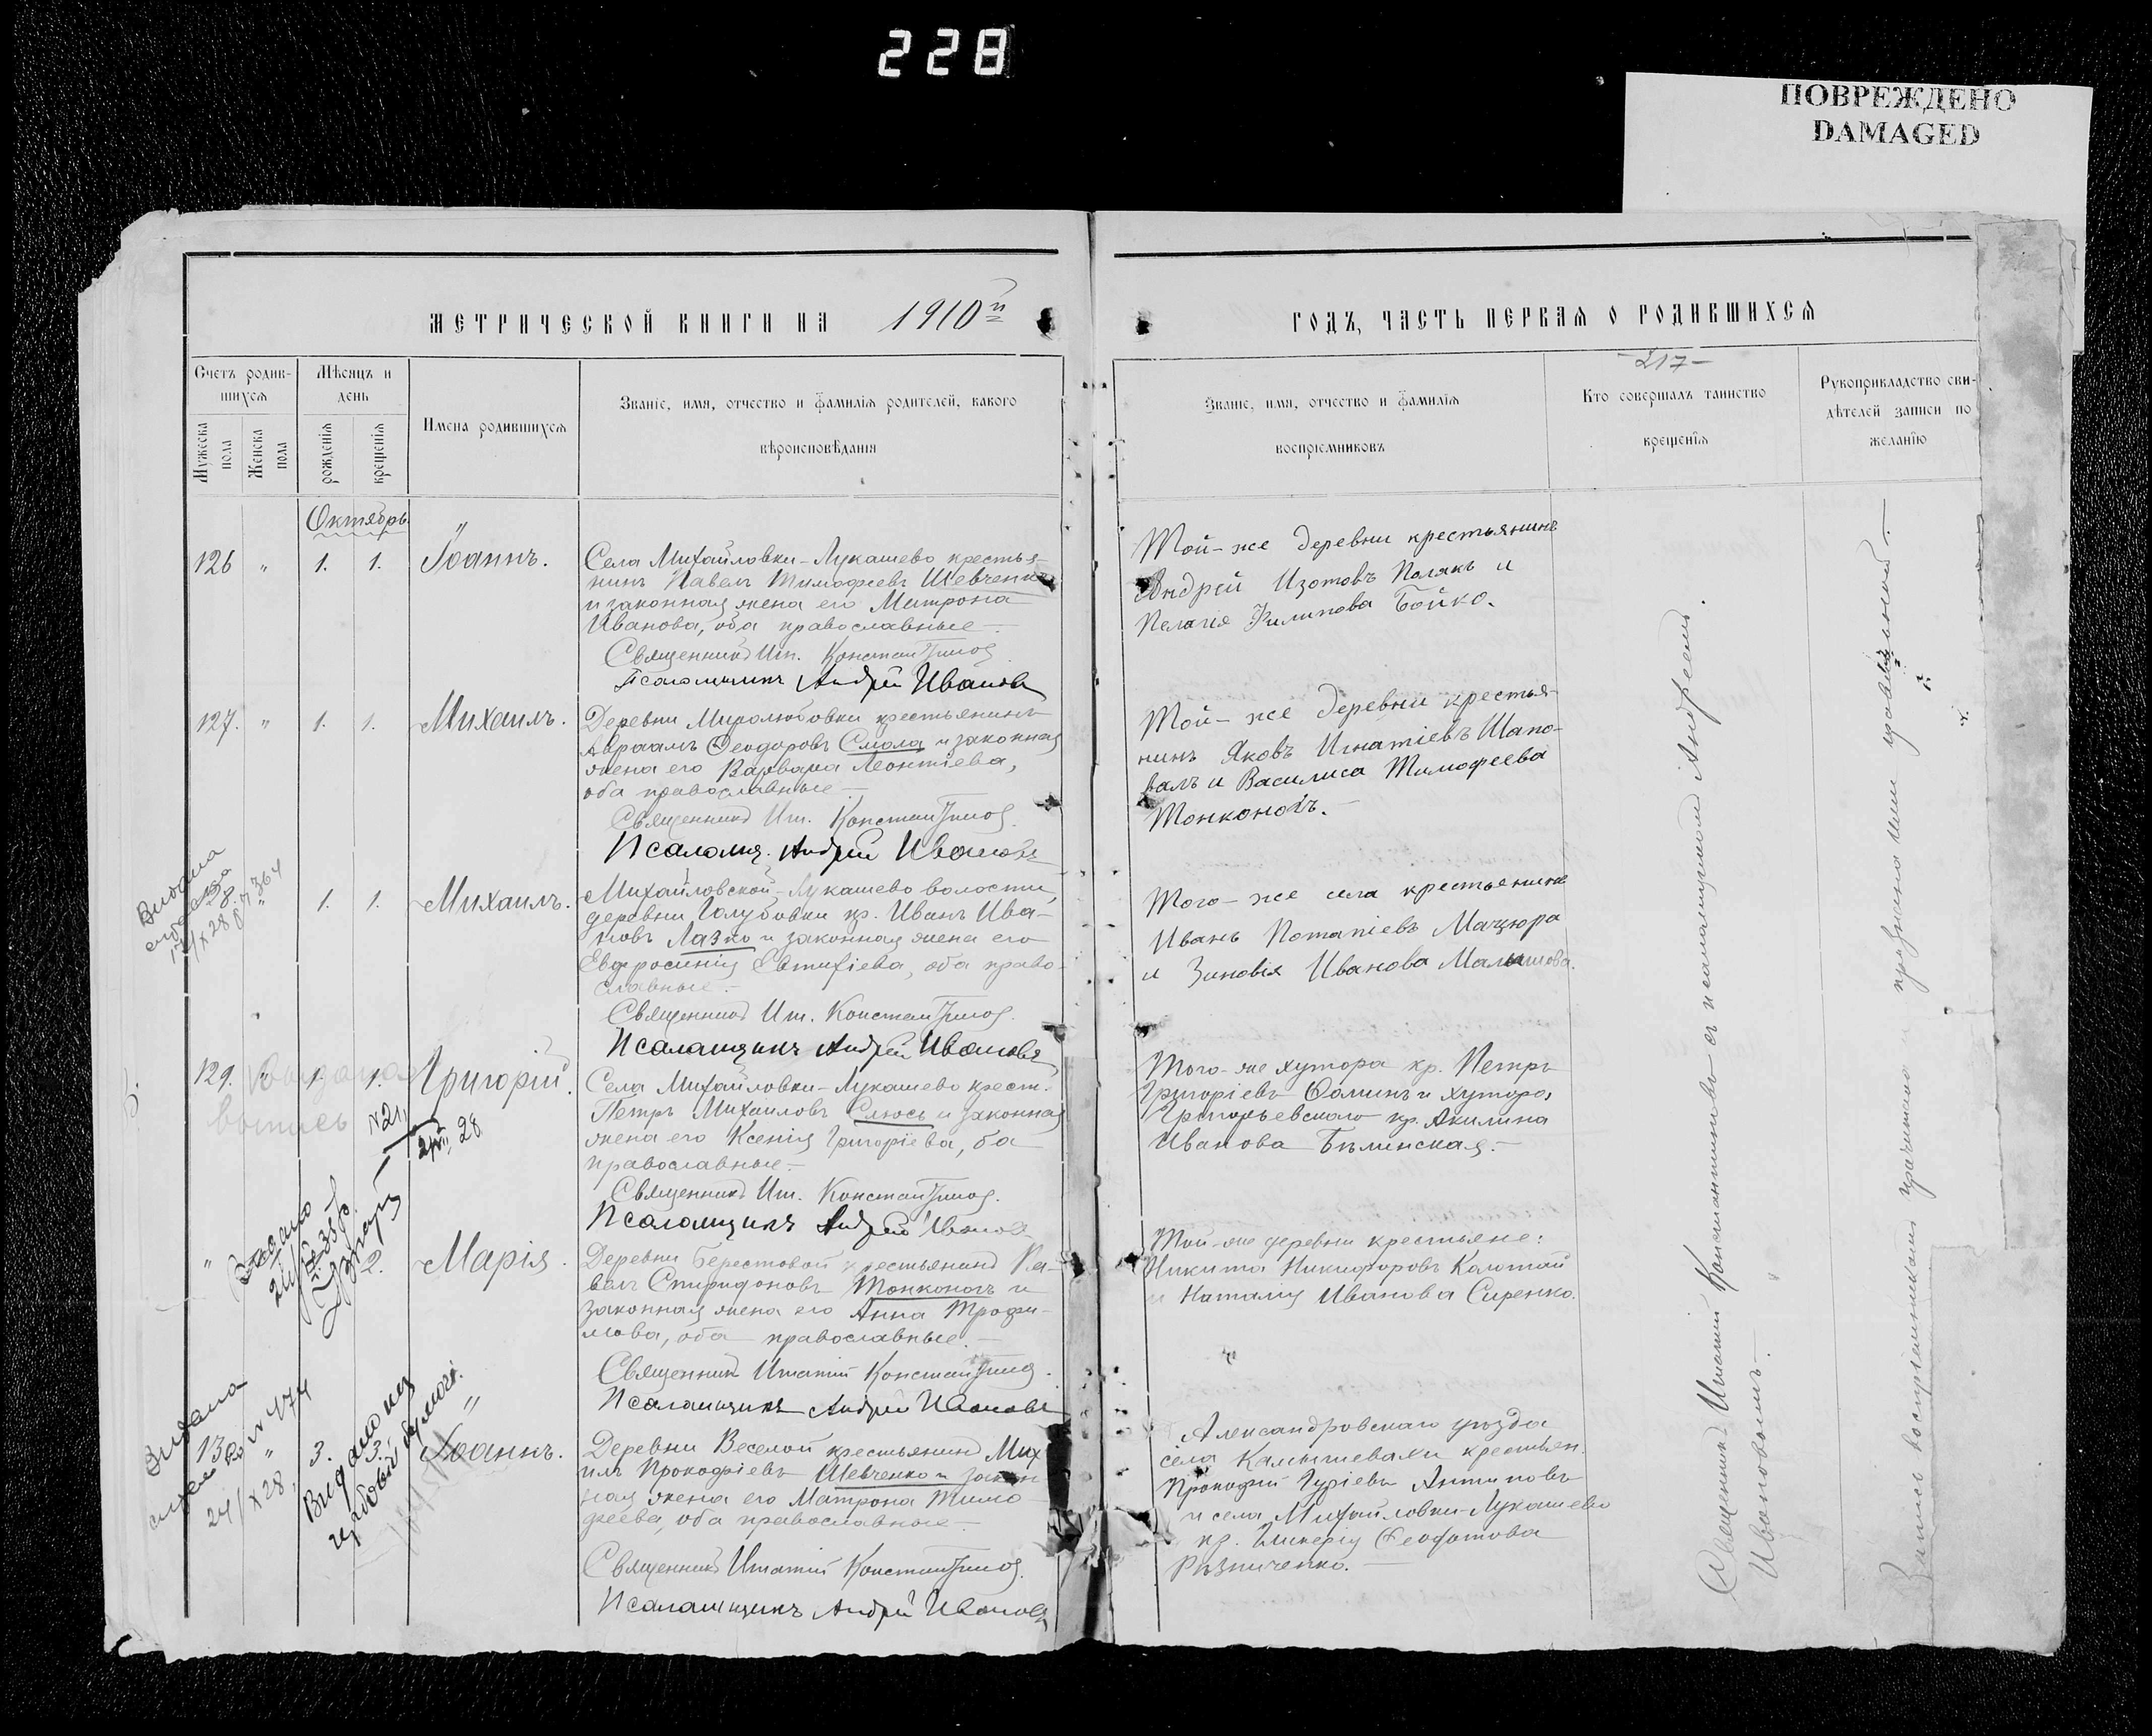 228
ПОВРЕЖДЕНО
DAMAGED
МЕТРИЧЕСКОЙ КНИГИ НА 1910й
ГОДЪ, ЧАСТЬ ПЕРВАЯ О РОДИВШИХСЯ
-217-
Счетъ родив-
шихся
Мужеска
пола
Женска
пола
Мѣсяцъ и
день
рожденія
крещенія
Имена родившихся
Званіе, имя, отчество и фамилія родителей, какого
вѣроисповѣданія
Званіе, имя, отчество и фамилія
воспріемниковъ
Кто совершалъ таинство
крещенія
Рукоприкладство сви-
дѣтелей записи по
желанію
Октябрь
126 " 1. 1. Іоаннъ.
Села Михайловки-Лукашево крестья-
нинъ Павелъ Тимофеевъ Шевченко
и законная жена его Матрона
Иванова, оба православные.
Священникъ Иг. Константиновъ
Псаломщикъ Андрей Ивановъ
Той-же деревни крестьянинъ
Андрей Изотовъ Полякъ и
Пелагія Филипова Бойко.
127. " 1. 1. Михаилъ.
Деревни Миролюбовки крестьянинъ
Авраамъ Ѳеодоровъ Смола и законная
жена его Варвара Леонтіева,
оба православные
Священникъ Иг. Константиновъ
Псаломщ. Андрей Ивановъ
Той-же деревни крестья-
нинъ Яковъ Игнатіевъ Шапо-
валъ и Василиса Тимофеева
Тонконогъ.
Видана
128. " 1. 1. Михаилъ.
Михайловской-Лукашево волости,
деревни Голубовки кр. Иванъ Ива-
новъ Лазко и законная жена его
Евфросинія Евтихіева, оба право-
славные.
Священникъ Иг. Константиновъ
Псаломщикъ Андрей Ивановъ
Того-же села крестьянинъ
Иванъ Потапіевъ Мацюра
и Зиновія Иванова Малышова.
129. " 1. 1. Григорій.
выпись №21
28
Села Михайловки-Лукашево крест.
Петръ Михаиловъ Слюсь и законная
жена его Ксенія Григоріева, оба
православные.
Священникъ Иг. Константиновъ
Псаломщикъ Андрей Ивановъ
Того-же хутора кр. Петръ
Григоріевъ Ѳоминъ и хутора
Григорьевскаго кр. Акилина
Иванова Бѣлинская.
" 2. Марія.
Деревни Берестовой крестьянинъ Па-
велъ Спиридоновъ Тонконогъ и
законная жена его Анна Трофи-
мова, оба православные.
Священникъ Игнатій Константиновъ
Псаломщикъ Андрей Ивановъ
Той-же деревни крестьяне:
Никита Никифоровъ Колотай
и Наталія Иванова Сиренко.
Видана
24/X 28
130 " 3. 3. Іоаннъ.
Деревни Веселой крестьянинъ Миха-
илъ Прокофіевъ Шевченко и закон-
ная жена его Матрона Тимо-
феева, оба православные
Священникъ Игнатій Константиновъ
Псаломщикъ Андрей Ивановъ
Александровскаго уѣзда
села Камышевахи крестьян.
Прокофій Гуріевъ Антиповъ
и села Михайловки-Лукашево
кр. Гликерія Ѳеофатова
Рѣзниченко.
Священникъ Игнатій Константиновъ съ псаломщикомъ Андреемъ
Ивановымъ.